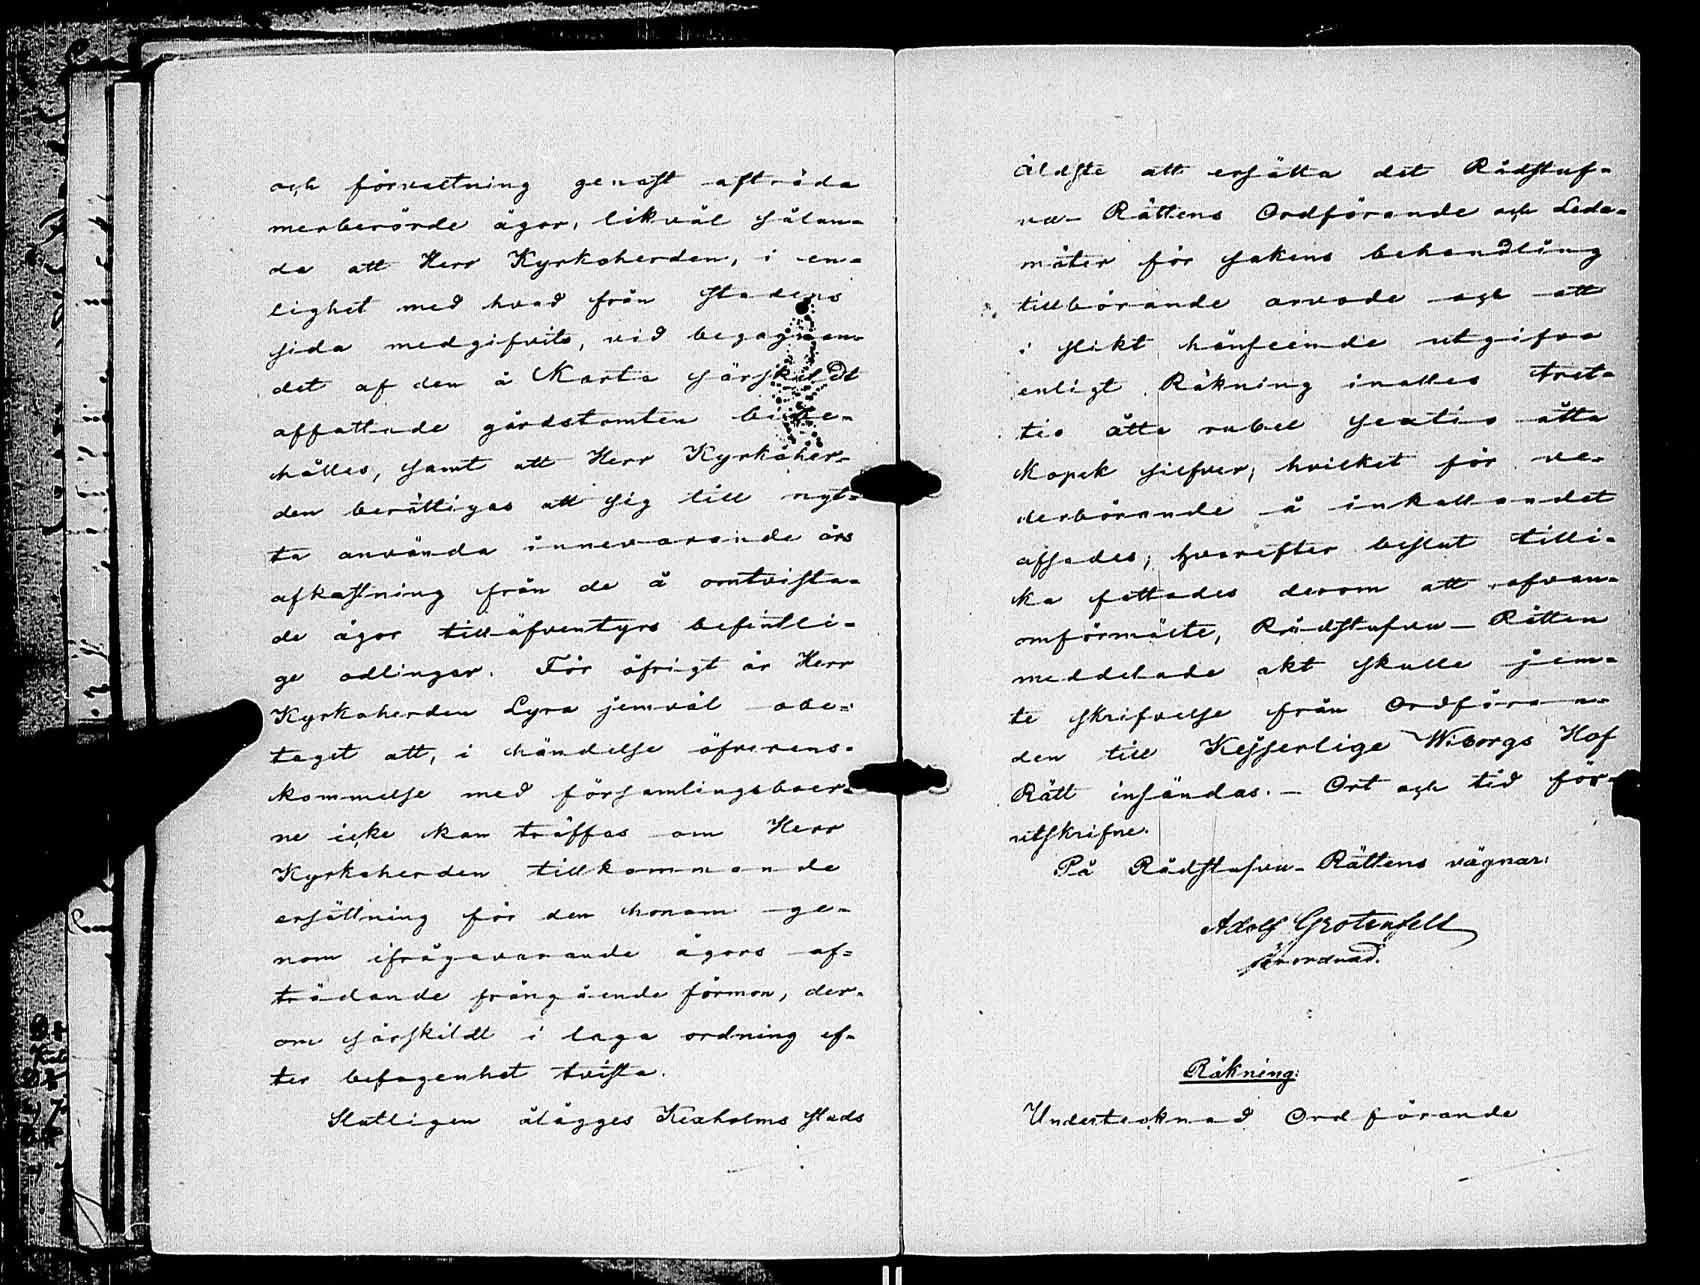 och förvaltning genast afträda
merberörde ägor, likväl sålun-
da att Herr Kyrkoherden, i en-
lighet med hvad från stadens
sida medgifvits, vid begagnan-
det af den å Karta särskildt
affattade gårdstomten bibe-
hålles, samt att Herr Kyrkoher-
den berättigas att sig till nyt-
ta använda innevarande års
afkastning från de å omtvista-
de ägor tilläfventyrs befintli-
ge odlingar. För öfrigt är Herr
Kyrkoherden Lyra jemväl obe-
taget att, i händelse öfverens-
kommelse med församlingsboer-
ne icke kan träffas om Herr
Kyrkoherden tillkommande
ersättning för den honom ge-
nom ifrågavarande ägors af-
trädande frångående förmon, der-
om särskildt i laga ordning ef-
ter befogenhet tvista.
Slutligen ålägges Kexholms stads
äldste att ersätta det Rådstuf-
vu-Rättens Ordförande och Leda-
möter för sakens behandling
tillkörande arvode och att
i slikt hänseende utgifva
enligt Räkning inalles tret-
tio åtta rubel sextio åtta
kopek silfver; hvilket för ve-
derbörande å inkallandet
afsades; hvarefter beslut tilli-
ka fattades derom att ofvan-
omförmälte, Rådstufvu-Rätten
meddelade akt skulle jem-
te skrifvelse från Ordföran-
den till Kejserlige Wiborgs Hof
Rätt insändas. - Ort och tid för-
utskrifne.
På Rådstufvu-Rättens vägnar:
Adolf Grotenfelt
förordnad.
Räkning:
Undertecknad Ordförande